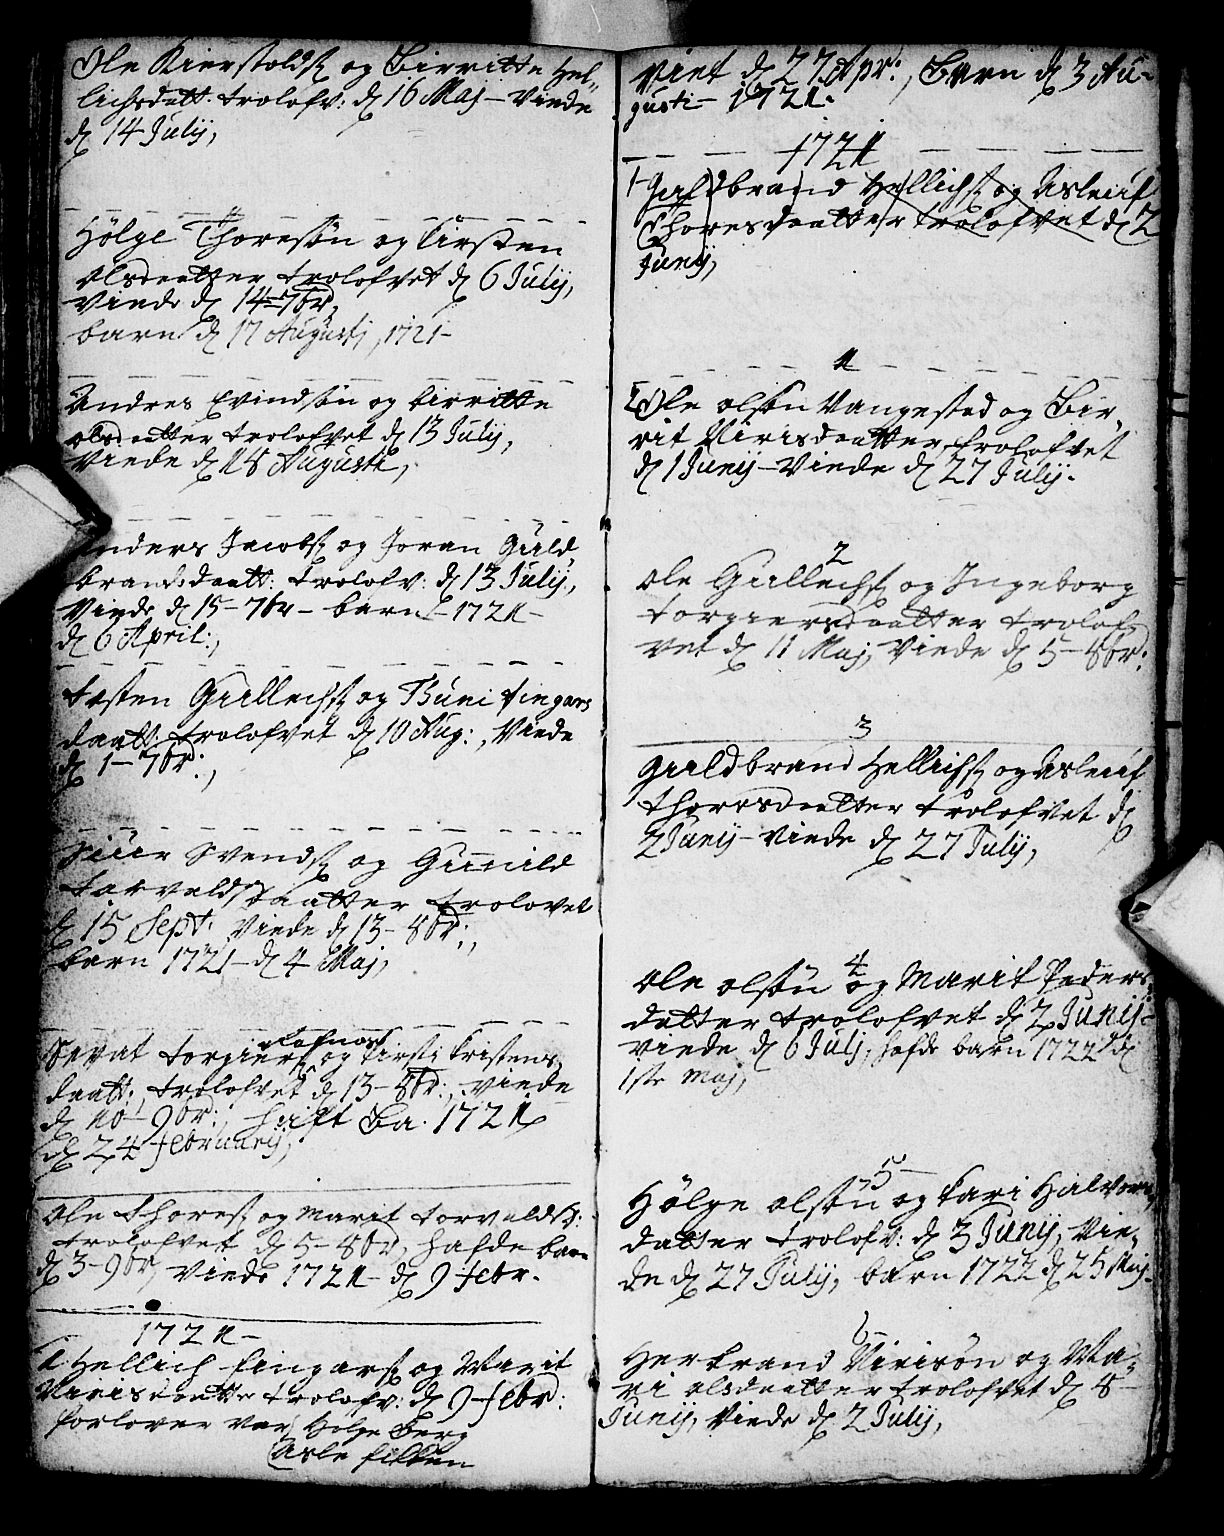 Ole Kierstolds. og Birritte Hel-
lichsdatt. trolofv: d. 16 Maj - Viede
d. 14 Julij,
Hölge Thoresön og Kirsten
Olsdaatter trolofvet d. 6 Julij,
Viede d. 14-7br,
barn d. 17 Augusti, 1721-
Andres Evindsön og birritte
olsdaatter trolofvet d. 13 Julij,
Viede d. 18 Augusti,
Anders Jacobs. og Joran Guld
brandsdaatt: trolofv: d. 13 Julij,
Viede d. 15-7br - barn - 1721-
d. 6 April:,
Tosten Gullechs. og Thuni fingars
daatt. trolofvet d. 10 Aug:, Viede
d. 1-7br:,
Siuer Svends. og Gunnild
torvaldsdaatter trolovet
d. 15 Sept. Viede d. 13-8br:,
barn 1721 - d. 4 Maj,
Sevat torgiers. og Kirsti kristens
daatt:, trolofvet d. 13-8br:, Viede
d. 10-9br:, haft Ba. 1721
d. 24 februarij,
Ole Thores. og Marit torvaldsd:
trolofvet d. 5-8br, hafde barn
d. 3-9br, Viede 1721- d. 9 febr.
1721-
1 Hellich fingars. og Marit
Narisdaatter trolofv: d. 9 febr:
forlover var Holge Berg
Asle fillken
Viet d. 27 Apr:, Barn d. 3 Au-
gusti - 1721.
1721
1 Guldbrand Hellichs. og Asleuf
Thoresdaatter trolofvet d. 2
Junij,
1
Ole olsön Vangestad og Bir-
rit Nirisdaatter, trolofvet
d. 1 Junij - Viede d. 27 Julij.
2
Ole Gullechs. og Ingeborg
torgiersdaatter trolof
vet d. 11 Maj, Viede d. 5-8br:
3
Guldbrand Hellichs. og Asleuf
Thoresdaatter trolofvet d.
2 Junij - Viede d. 27 Julij,
4
Ole olsön og Marit Peders
datter trolofvet d. 2 Junij-
Viede d. 6 Julj, hafde barn 1722 d.
1ste Maj,
5
Hölge olsön og Kari Halvors
datter trolofv: d. 3 Junij, Vie-
de d. 27 Julij, barn 1722 d. 25 Maj-
6
Herbrand Nirisön og Ma-
ri olsdaatter trolofvet d. 8-
Junij, Viede d. 2 Julij,